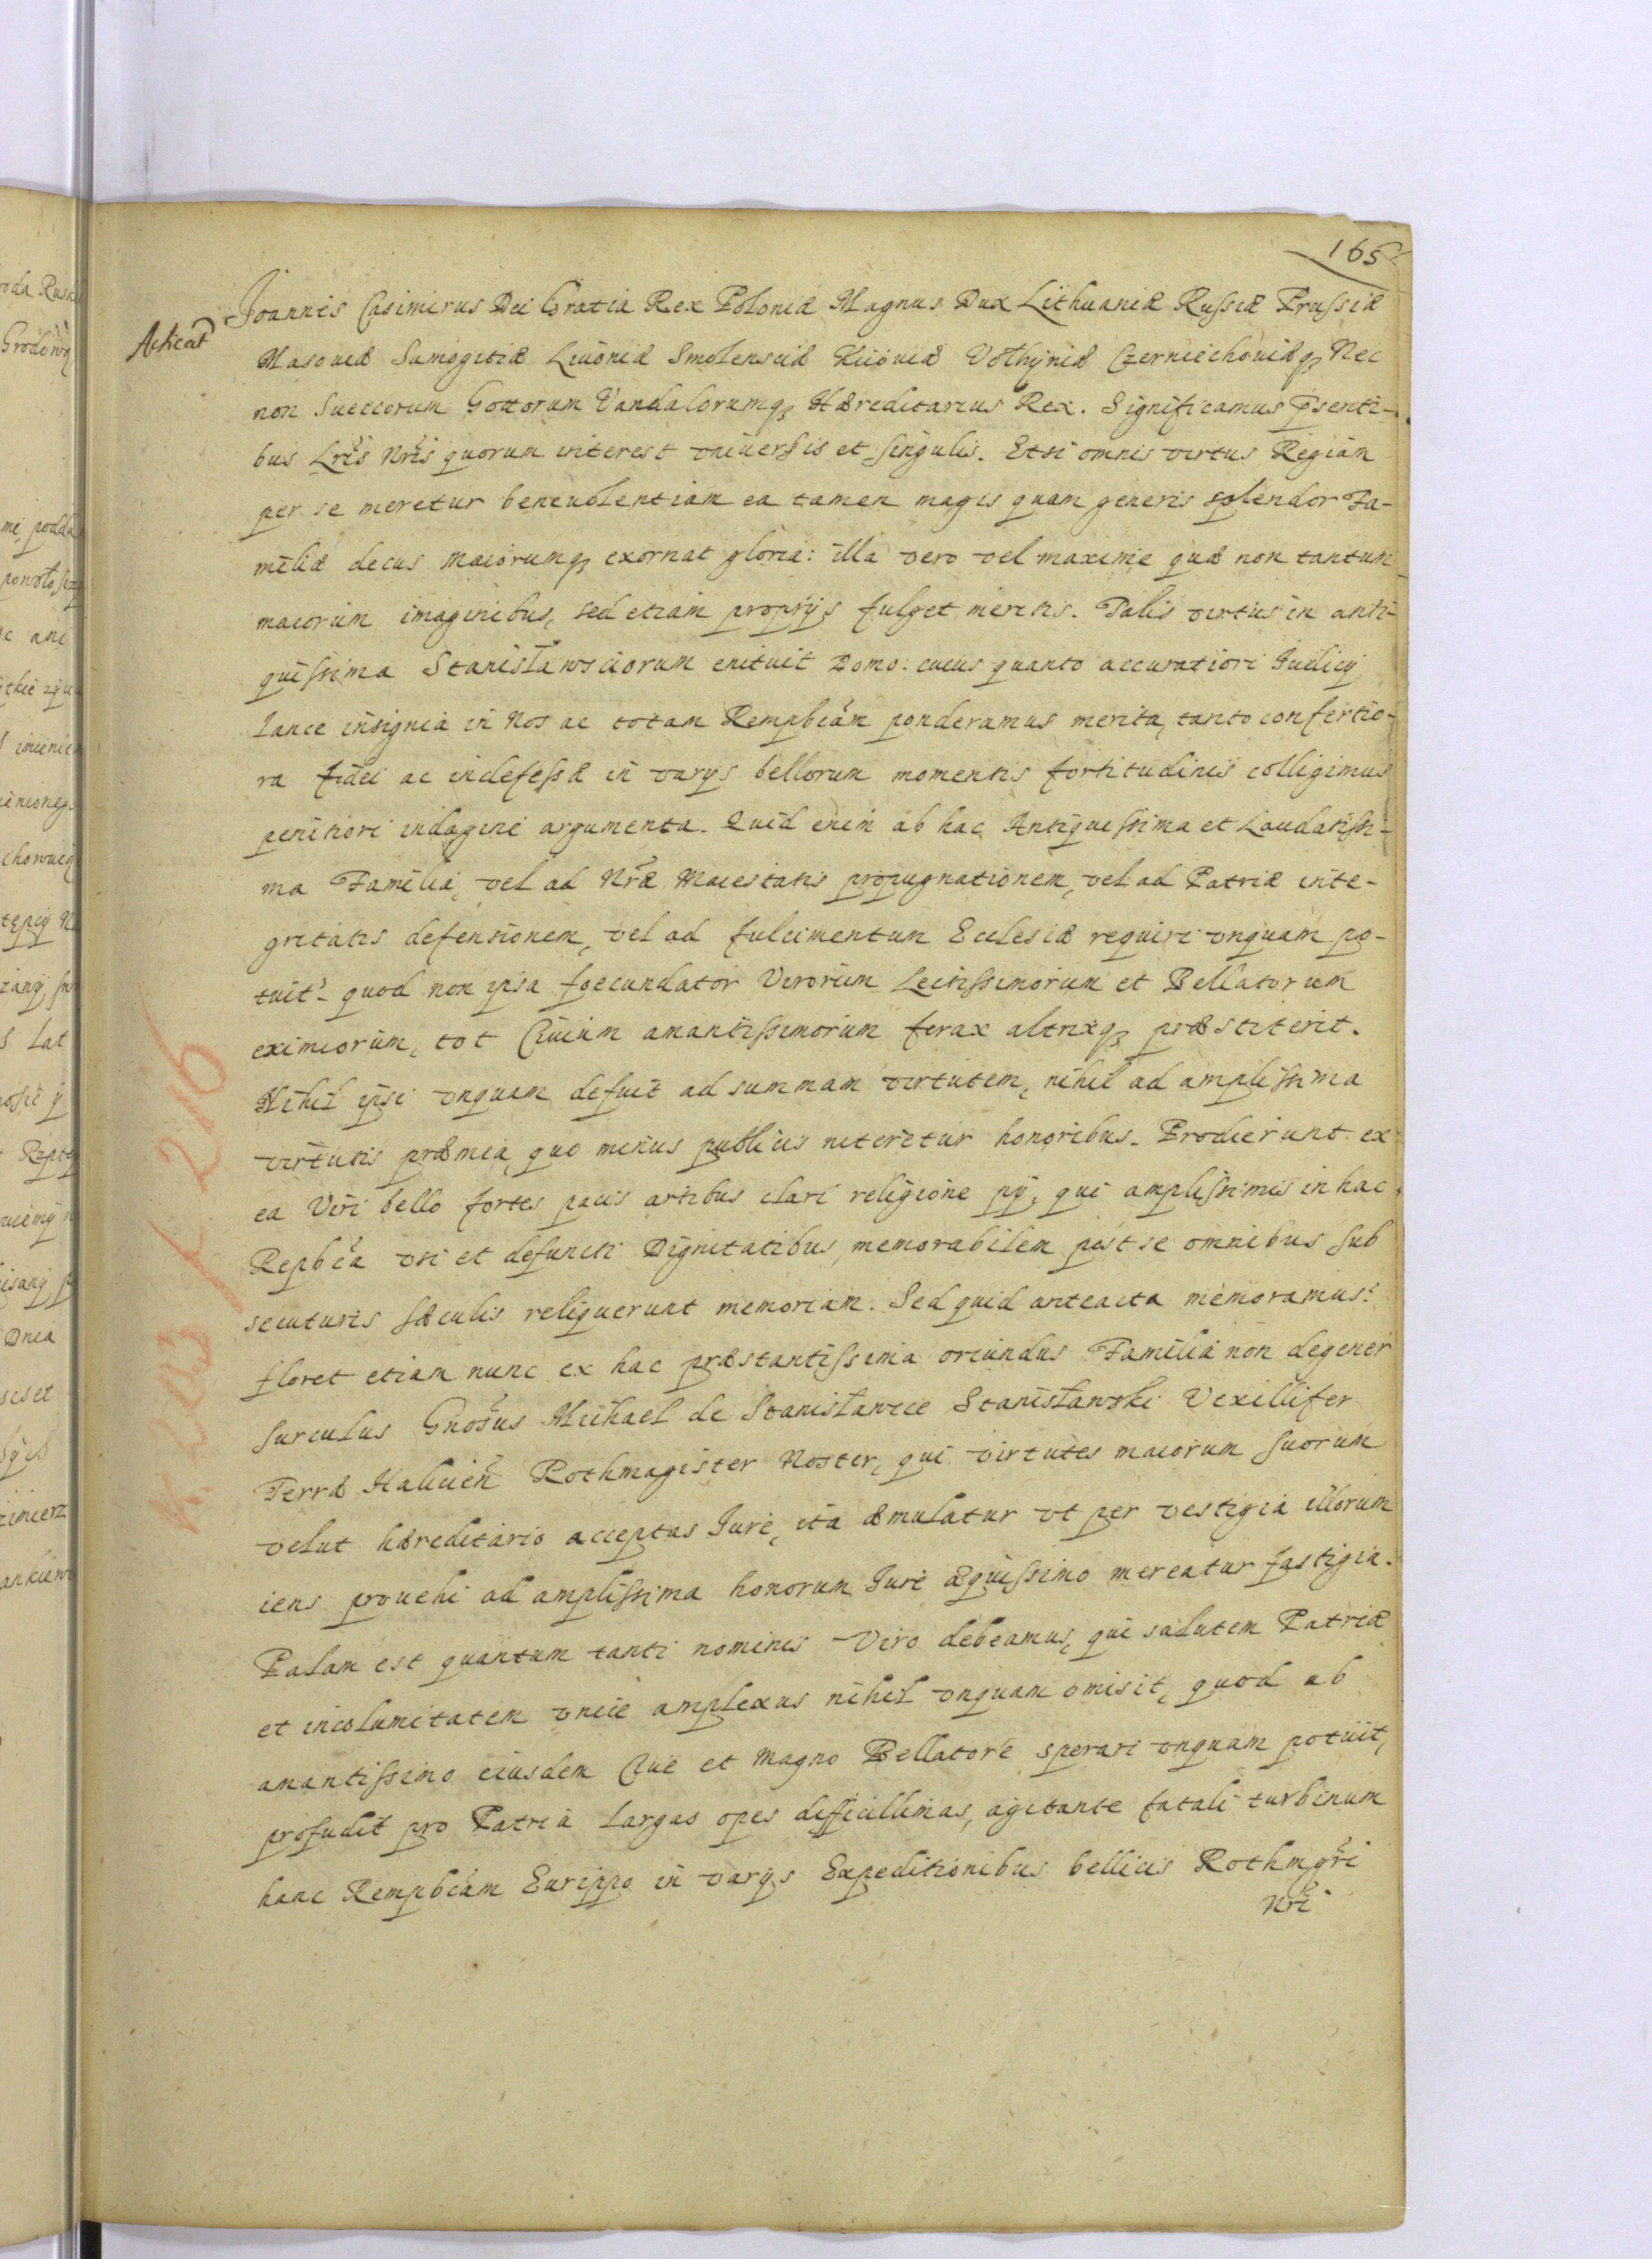 165
Joannes Casimirus Dei Gratia Rex Poloniæ Magnus Dux Lithuaniæ Russiæ Prussiæ
Masoviæ Samogitiæ Livoniæ Smolensciæ Kiioviæ Volhyniæ Czerniechoviæq₃ Nec
non Sueccorum Gottorum Vandalorumq₃ Hæreditarius Rex. Significamus pñsenti-
bus Lrẽs Nrẽs quorum interest vniuersis et singulis. Etsi omnis virtus Regiam
per se meretur beneuolentiam ea tamen magis quam generis splendor Fa-
miliæ decus maiorumq₃ exornat gloria: illa vero vel maxime quæ non tantum
maiorum imaginibus, sed etiam proprijs fulget meritis. Talis virtus in anti-
quissima Stanisławsciorum enituit Domo: cuius quanto accuratiori Iudicij
Lance insignia in Nos ac totam Rempbcãm ponderamus merita, tanto confertio-
ra fidei ac indefessæ in varijs bellorum momentis fortitudinis colligimus
penitiori indagine argumenta. Quid enim ab hac Antiquissima et Laudatissi-
ma Familia, vel ad Nrãe Maiestatis propugnationem, vel ad Patriæ inte-
gritatis defensionem, vel ad fulcimentum Ecclesiæ requiri vnquam po-
tuit? quod non ipsa foecundator Virorum Lectissimorum et Bellatorum
eximiorum, tot Ciuium amantissimorum ferax altrixq₃ præstiterit.
Nihil ipsi vnquam defuit ad summam virtutem, nihil ad amplissima
virtutis præmia, quo minus publicis niteretur honoribus. Prodierunt ex
ea Viri bello fortes pacis artibus clari religione pij, qui amplissimis in hac
Repbcã vsi et defuncti Dignitatibus, memorabilem post se omnibus sub
secuturis sæculis reliquerunt memoriam. Sed quid anteacta memoramus?
floret etiam nunc ex hac præstantissima oriundus Familia non degener
surculus Gnosũs Michael de Stanisławice Stanisławski Vexillifer
Terræ Halicieñ Rothmagister Noster, qui virtutes maiorum suorum
velut hæreditario acceptas Iure, ita æmulatur vt per vestigia illorum
iens prouehi ad amplissima honorum Iure æquissimo mereatur fastigia.
Palam est quantum tanti nominis Viro debeamus, qui salutem Patriæ
et incolumitatem vnice amplexus nihil vnquam omisit, quod ab
amantissimo eiusdem Ciue et magno Bellatore sperari vnquam potuit,
profudit pro Patria largas opes difficillimas, agitante fatali turbinum
hanc Rempbcãm Eurippo in varijs Expeditionibus bellicis Rothmgrĩ
Nrĩ
Acticat
k. 203 f 206